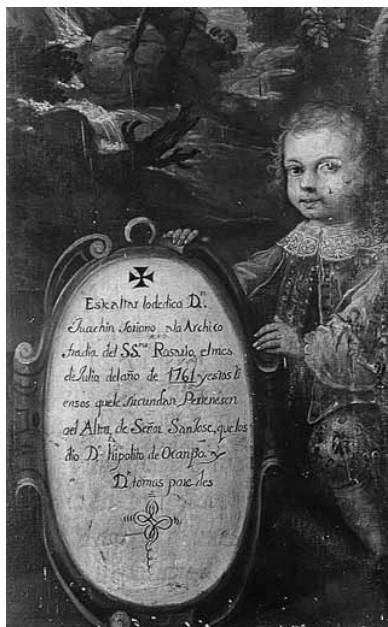 Este altar lo dedica D.n
Juachin Soriano ala Archico
fradia del SS.mo Rosario, el mes
de Julio del año de 1761 y estos li
ensos que le sircundan Perenesen
ael Altar, de Señor San Jose, que los
dio D.n Hipolito de Ocanpo. y
D.n tomas pare des